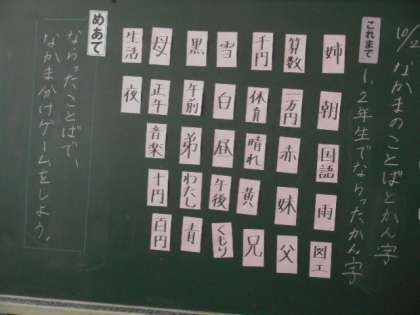 なかまのことばとかん字
これまで
1、2年生でならったかん字
姉
朝
国語
雨
図工
算数
一万円
赤
妹
父
千円
体育
晴れ
黄
兄
雪
白
昼
午後
くもり
黒
午前
弟
わたし
青
母
正午
音楽
十円
百円
生活
夜
めあて
ならったことばで、
なかまわけゲームをしよう。